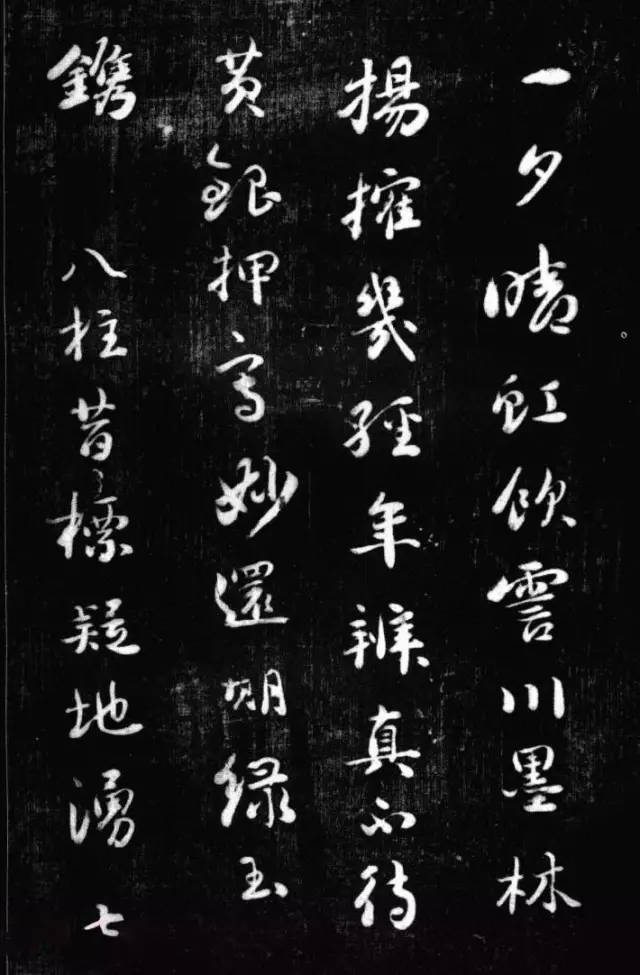 一夕晴虹飲霅川墨林
揚搉幾經年辨真不待
黃銀押寫妙還期綠玉
鐫 八柱昔標疑地湧七